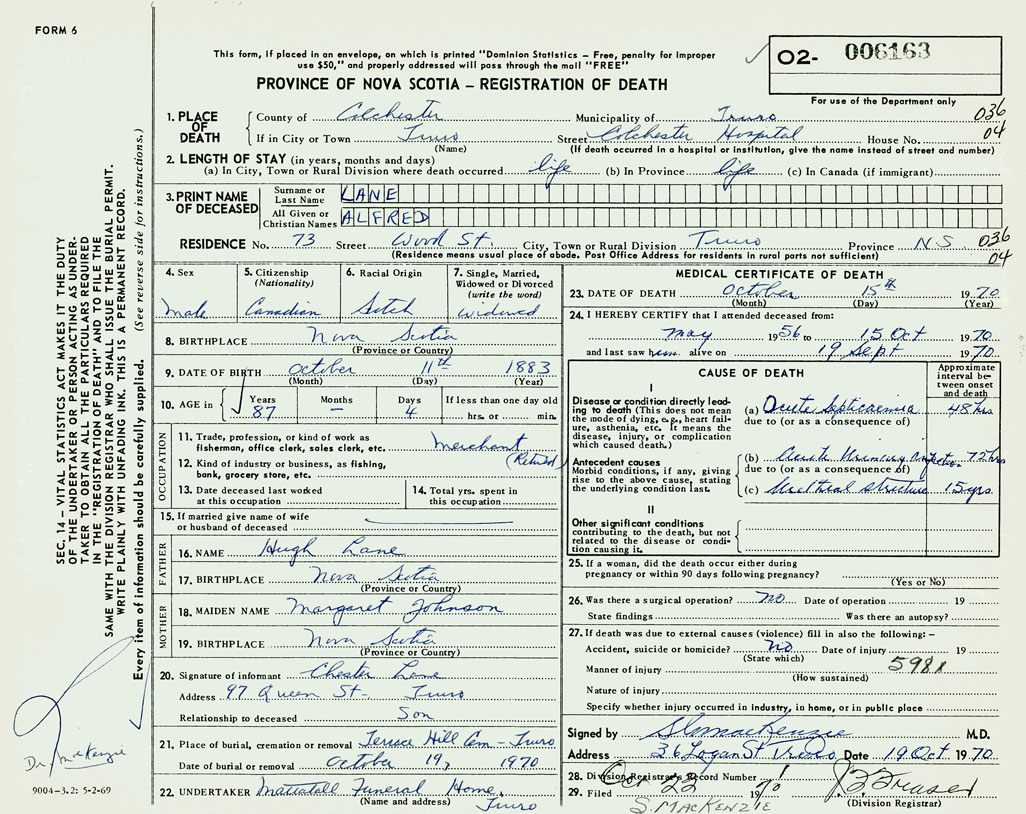 FORM 6
This form, if placed in an envelope, on which is printed "Dominion Statistics – Free, penalty for improper
use $50," and properly addressed will pass through the mail "FREE"
02- 006163
PROVINCE OF NOVA SCOTIA – REGISTRATION OF DEATH
For use of the Department only
1. PLACE OF DEATH
County of Colchester Municipality of Truro 036
If in City or Town Truro Street Colchester Hospital House No. 04
(Name) (If death occurred in a hospital or institution, give the name instead of street and number)
2. LENGTH OF STAY (in years, months and days)
(a) In City, Town or Rural Division where death occurred life (b) In Province life (c) In Canada (if immigrant)
3. PRINT NAME OF DECEASED
Surname or Last Name LANE
All Given or Christian Names ALFRED
RESIDENCE No. 73 Street Wood St. City, Town or Rural Division Truro Province N.S. 036
(Residence means usual place of abode. Post Office Address for residents in rural parts not sufficient) 04
4. Sex
Male
5. Citizenship
(Nationality)
Canadian
6. Racial Origin
Sctch
7. Single, Married,
Widowed or Divorced
(write the word)
widowed
8. BIRTHPLACE Nova Scotia
(Province or Country)
9. DATE OF BIRTH October 11th 1883
(Month) (Day) (Year)
10. AGE in Years 87 Months – Days 4 If less than one day old
hrs. or min.
OCCUPATION
11. Trade, profession, or kind of work as
fisherman, office clerk, sales clerk, etc. merchant
(Retired)
12. Kind of industry or business, as fishing,
bank, grocery store, etc.
13. Date deceased last worked
at this occupation
14. Total yrs. spent in
this occupation
15. If married give name of wife
or husband of deceased
FATHER
16. NAME Hugh Lane
17. BIRTHPLACE Nova Scotia
(Province or Country)
MOTHER
18. MAIDEN NAME Margaret Johnson
19. BIRTHPLACE Nova Scotia
(Province or Country)
20. Signature of informant Chester Lane
Address 97 Queen St- Truro
Relationship to deceased Son
21. Place of burial, cremation or removal Terrace Hill Cem - Truro
Date of burial or removal October 19, 1970
22. UNDERTAKER Mattatall Funeral Home,
(Name and address) Truro
MEDICAL CERTIFICATE OF DEATH
23. DATE OF DEATH October 15th 1970
(Month) (Day) (Year)
24. I HEREBY CERTIFY that I attended deceased from:
May 1956 to 15 Oct 1970
and last saw him alive on 19 Sept 1970
CAUSE OF DEATH
Approximate
interval be-
tween onset
and death
I
Disease or condition directly lead-
ing to death (This does not mean
the mode of dying, e.g., heart fail-
ure, asthenia, etc. It means the
disease, injury, or complication
which caused death.)
(a) Acute Septicaemia 48 hrs
due to (or as a consequence of)
Antecedent causes
Morbid conditions, if any, giving
rise to the above cause, stating
the underlying condition last.
(b) Acute Urinary infection 72 hrs
due to (or as a consequence of)
(c) Urethral stricture 15 yrs
II
Other significant conditions
contributing to the death, but not
related to the disease or condi-
tion causing it.
25. If a woman, did the death occur either during
pregnancy or within 90 days following pregnancy?
(Yes or No)
26. Was there a surgical operation? no Date of operation 19
State findings Was there an autopsy?
27. If death was due to external causes (violence) fill in also the following: –
Accident, suicide or homicide? no Date of injury 19
(State which)
Manner of injury 598X
(How sustained)
Nature of injury
Specify whether injury occurred in industry, in home, or in public place
Signed by S. MacKenzie M.D.
Address 36 Logan St Truro Date 19 Oct 1970
28. Division Registrar's Record Number
29. Filed Oct 22 1970 J B Fraser
(Division Registrar)
S. MACKENZIE
SEC. 14 – VITAL STATISTICS ACT MAKES IT THE DUTY
OF THE UNDERTAKER OR PERSON ACTING AS UNDER-
TAKER TO OBTAIN ALL THE PARTICULARS REQUIRED
IN THE "REGISTRATION OF DEATH" AND TO FILE THE
SAME WITH THE DIVISION REGISTRAR WHO SHALL ISSUE THE BURIAL PERMIT.
WRITE PLAINLY WITH UNFADING INK. THIS IS A PERMANENT RECORD.
Every item of information should be carefully supplied. (See reverse side for instructions.)
Dr MacKenzie
9004-3.2: 5-2-69